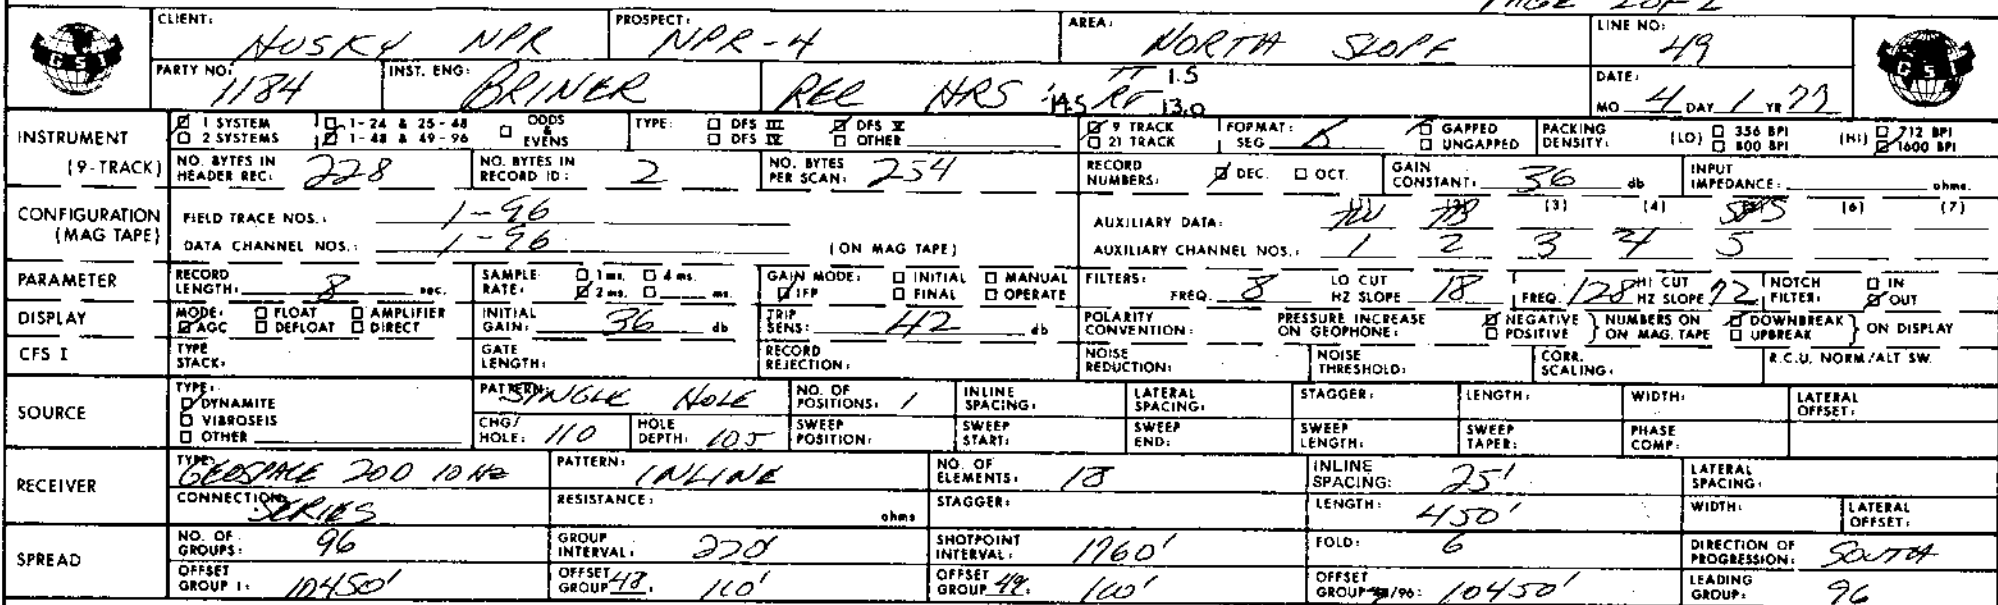 PAGE 2 OF 2
CLIENT: HUSKY NPR PROSPECT: NPR-4 AREA: NORTH SLOPE LINE NO: 49
GSI GSI
PARTY NO: 1184 INST. ENG: BRINER REC HRS TT 1.5
RT 13.0
DATE: MO 4 DAY 1 YR 79
INSTRUMENT 1 SYSTEM 1-24 & 25-48 ODDS & EVENS TYPE: DFS III DFS V 9 TRACK FORMAT: GAPPED PACKING DENSITY: (LO) 356 BPI (HI) 712 BPI
2 SYSTEMS 1-48 & 49-96 DFS IV OTHER 21 TRACK SEG B UNGAPPED 800 BPI 1600 BPI
(9-TRACK) NO. BYTES IN HEADER REC: 228 NO. BYTES IN RECORD ID: 2 NO. BYTES PER SCAN: 254 RECORD NUMBERS: DEC. OCT. GAIN CONSTANT: 36 db INPUT IMPEDANCE: ohms.
CONFIGURATION FIELD TRACE NOS.: 1-96 AUXILIARY DATA: (1) TW (2) TB (3) (4) (6) (7)
(MAG TAPE) DATA CHANNEL NOS.: 1-96 (ON MAG TAPE) AUXILIARY CHANNEL NOS.: 1 2 3 4 5
PARAMETER RECORD LENGTH: 8 sec. SAMPLE RATE: 1 ms. 4 ms. 2 ms. ms. GAIN MODE: INITIAL MANUAL IFP FINAL OPERATE FILTERS: FREQ. 8 LO CUT HZ SLOPE 18 FREQ. 128 HI CUT HZ SLOPE 72 NOTCH FILTER: IN OUT
DISPLAY MODE: FLOAT AMPLIFIER AGC DEFLOAT DIRECT INITIAL GAIN: 36 db TRIP SENS: 42 db POLARITY CONVENTION: PRESSURE INCREASE ON GEOPHONE: NEGATIVE POSITIVE } NUMBERS ON MAG. TAPE DOWNBREAK UPBREAK } ON DISPLAY
CFS I TYPE STACK: GATE LENGTH: RECORD REJECTION: NOISE REDUCTION: NOISE THRESHOLD: CORR. SCALING: R.C.U. NORM/ALT SW.
SOURCE TYPE: DYNAMITE VIBROSEIS OTHER PATTERN: SINGLE HOLE NO. OF POSITIONS: 1 INLINE SPACING: LATERAL SPACING: STAGGER: LENGTH: WIDTH: LATERAL OFFSET:
CHG/HOLE: 110 HOLE DEPTH: 105 SWEEP POSITION: SWEEP START: SWEEP END: SWEEP LENGTH: SWEEP TAPER: PHASE COMP:
RECEIVER TYPE: GEOSPACE 20D 10 HZ PATTERN: INLINE NO. OF ELEMENTS: 18 INLINE SPACING: 25' LATERAL SPACING:
CONNECTION: SERIES RESISTANCE: ohms STAGGER: LENGTH: 450' WIDTH: LATERAL OFFSET:
SPREAD NO. OF GROUPS: 96 GROUP INTERVAL: 220' SHOTPOINT INTERVAL: 1760' FOLD: 6 DIRECTION OF PROGRESSION: SOUTH
OFFSET GROUP 1: 10450' OFFSET GROUP 48: 110' OFFSET GROUP 49: 110' OFFSET GROUP /96: 10450' LEADING GROUP: 96